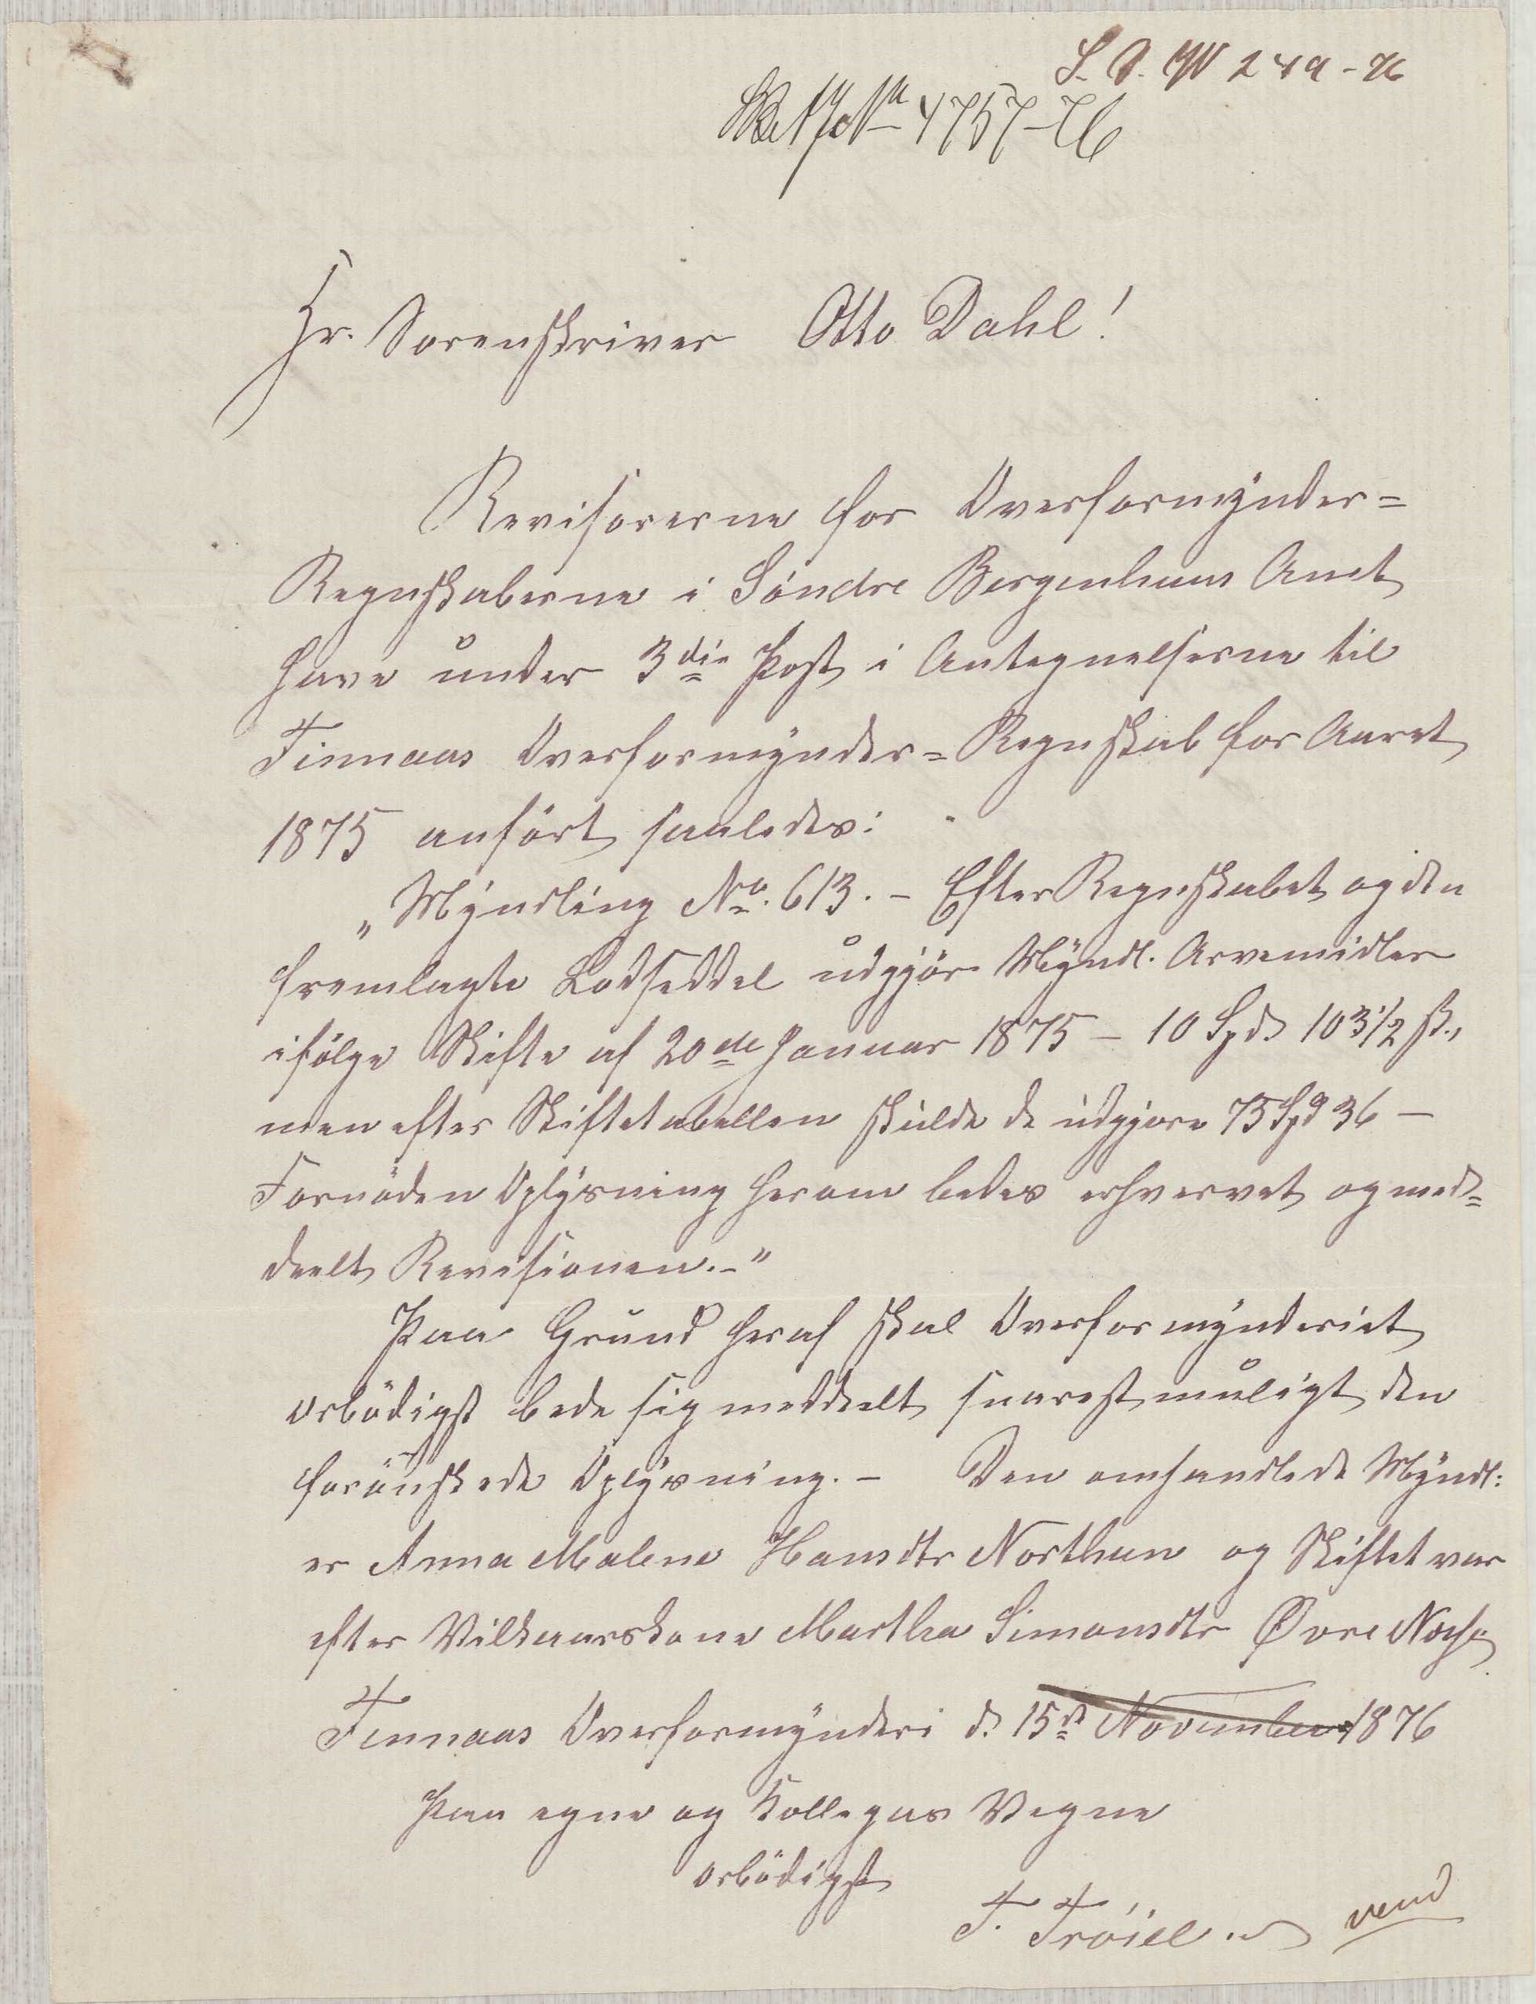 S. D. No 249-76
No 4757-76
Hr. Sorenskriver Otto Dahl!
Revisorerne for Overformynder=
Regnskaberne i Søndre Bergenhuus Amt
have under 3die Post i Antegnelserne til
Finnaas Overformynder=Regnskab for Aaret
1875 anført saaledes:
"Myndling No. 613. - Efter Regnskabet og den
fremlagte Lodseddel udgjør Myndl. Arvemidler
ifølge Skifte af 20de Januar 1875 - 10 Spd. 103 1/2 ß.,
men efter Skiftetabellen skulde de udgjøre 75 Spd 36 -
Fornøden Oplysning herom bedes erhvervet og med=
deelt Revisionen.-"
Paa Grund heraf skal Overformynderiet
ærbødigst bede sig meddeelt snarest muligt den
forønskede Oplysning. - Den omhandlede Myndl:
er Anna Malene Hansdtr Northun og Skiftet var
efter Vilkaarskone Martha Simonsdtr Øvre
Finnaas Overformynderi d. 15de November 1876
Paa egne og Kollegas Vegne
ærbødigst
F. Trøiel.
vend